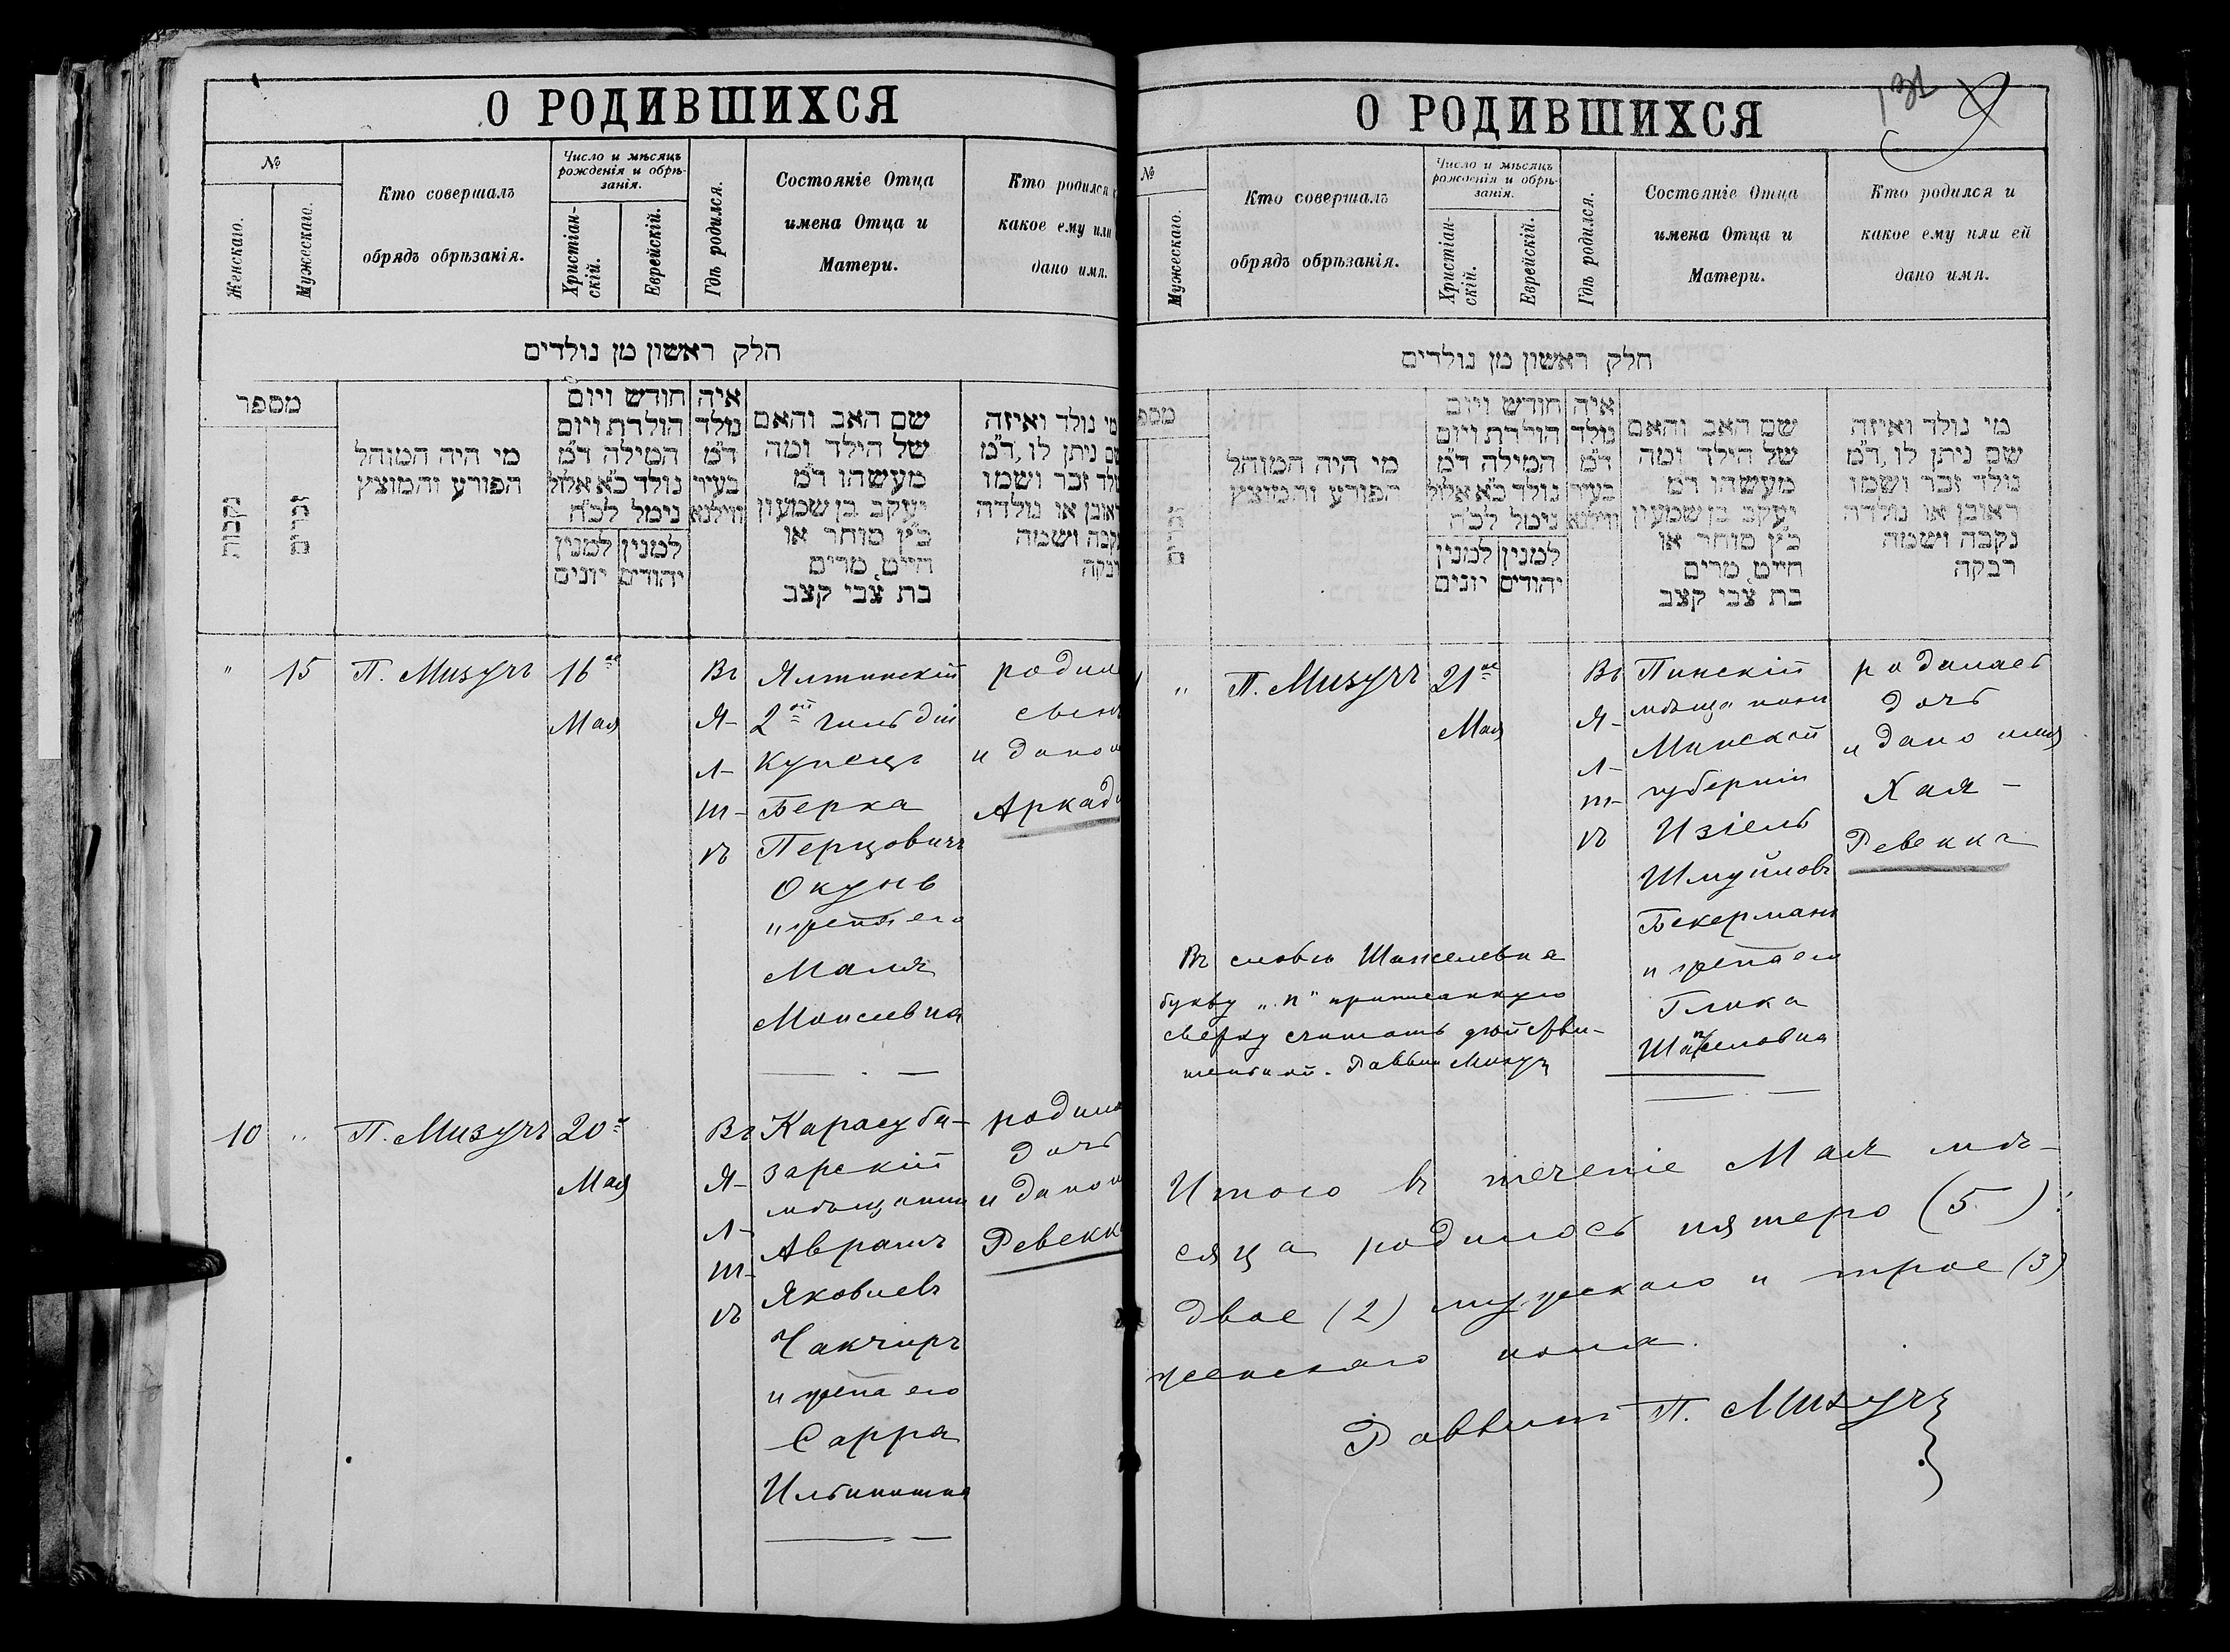 О РОДИВШИХСЯ
№
Женскаго.
Мужескаго.
Кто совершалъ
обрядъ обрѣзанія.
Число и мѣсяцъ
рожденія и обрѣ-
занія.
Христіан-
скій.
Еврейскій.
Гдѣ родился.
Состояніе Отца
имена Отца и
Матери.
Кто родился
какое ему или
дано имя.
חלק ראשון מן נולדים
מספר
נקבות
זכרים
מי היה המוהל
הפורע והמוצץ
חודש ויום
הולדת ויום
המילה ד״מ
נולד כ״א אלול
נימל לכ״ח
למנין
יהודים
למנין
יונים
איה
נולד
ד״מ
בעיר
ווילנא
שם האב והאם
של הילד ומה
מעשהו ד״מ
יעקב בן שמעון
כ״ץ סוחר או
חייט, מרים
בת צבי קצב
מי נולד ואיזה
שם ניתן לו, ד״מ
נולד זכר ושמו
ראובן או נולדה
נקבה ושמה
רבקה
" 15 П. Мизучъ 16го
Мая
Въ
Я-
л-
т-
ѣ
Ялтинскій
2ой гильдіи
Купецъ
Берка
Перцовичъ
Окунь
и жена его
Маля
Моисеевна
родил
сынъ
и дано
Аркад
10 " П. Мизучъ 20го
Мая
Въ
Я-
л-
т-
ѣ
Карасуба-
зарскій
мѣщанин
Аврамъ
Яковлевъ
Чакчиръ
и жена его
Сарра
Ильинишна
родила
дочь
и дано
Ревекк
О РОДИВШИХСЯ
131
№
Мужескаго.
Кто совершалъ
обрядъ обрѣзанія.
Число и мѣсяцъ
рожденія и обрѣ-
занія.
Христіан-
скій.
Еврейскій.
Гдѣ родился.
Состояніе Отца
имена Отца и
Матери.
Кто родился и
какое ему или ей
дано имя.
חלק ראשון מן נולדים
מספ
זכרים
מי היה המוהל
הפורע והמוצץ
חודש ויום
הולדת ויום
המילה ד״מ
נולד כ״א אלול
נימל לכ״ח
למנין
יהודים
למנין
יונים
איה
נולד
ד״מ
בעיר
ווילנא
שם האב והאם
של הילד ומה
מעשהו ד״מ
יעקב בן שמעון
כ״ץ סוחר או
חייט, מרים
בת צבי קצב
מי נולד ואיזה
שם ניתן לו, ד״מ
נולד זכר ושמו
ראובן או נולדה
נקבה ושמה
רבקה
" П. Мизучъ 21го
Мая
Въ
Я-
л-
т-
ѣ
Пинскій
мѣщанинъ
Минской
губерніи
Изіель
Шмуйловъ
Бекерманъ
и жена его
Глика
Шапселовна
родилась
дочь
и дано имя
Хая -
Ревекка
Въ словѣ Шапселевна
букву „п" приписанную
сверху считать дѣйстви-
тельной. Раввинъ Мизучъ
Итого въ теченіе Мая мѣ-
сяца родилось пятеро (5):
двое (2) мужескаго и трое (3)
женскаго пола.
Раввинъ П. Мизучъ